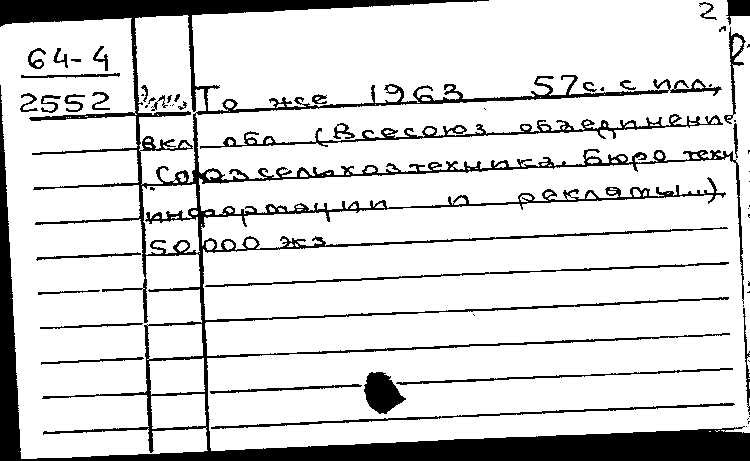 2
64-4
2552 То же 1963 57с. с илл.,
вкл. обл. (Всесоюз объединение
"Союзсельхозтехника. Бюро техн
информации и рекламы...)
50.000 экз